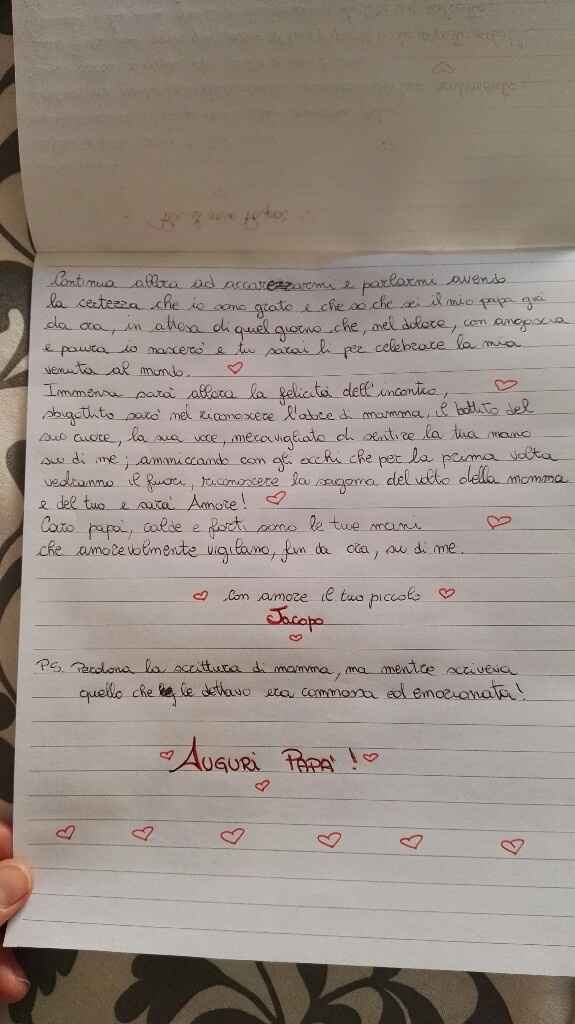 Continua allora ad accarezzarmi e parlarmi avendo
la certezza che io sono grato e che so che sei il mio papà già
da ora, in attesa di quel giorno che, nel dolore, con angoscia
e paura io nascerò e tu sarai lì per celebrare la mia
venuta al mondo.
Immensa sarà allora la felicità dell'incontro,
sbigottito sarò nel riconoscere l'odore di mamma, il battito del
suo cuore, la sua voce, meravigliato di sentire la tua mano
su di me; ammiccando con gli occhi che per la prima volta
vedranno il fuori, riconoscere la sagoma del volto della mamma
e del tuo e sarà Amore!
Caro papà, calde e forti sono le tue mani
che amorevolmente vigilano, fin da ora, su di me.
Con amore il tuo piccolo
Jacopo
PS. Perdona la scrittura di mamma, ma mentre scriveva
quello che le dettavo era commossa ed emozionata!
AUGURI PAPA'!